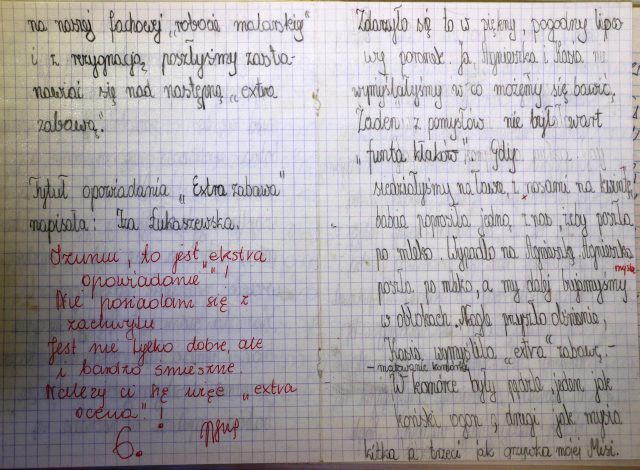 na naszej fachowej „robocie malarskiej"
i z rezygnacją poszłyśmy zasta-
nawiać się nad następną „extra
zabawą."
Tytuł opowiadania „Extra zabawa"
napisała: Iza Łukaszewska.
Izuniu, to jest „ekstra
opowiadanie"!
Nie posiadam się z
zachwytu
Jest nie tylko dobre, ale
i bardzo śmieszne.
Należy ci się więc „extra
ocena"!
6.
Zdarzyło się to w piękny, pogodny lipco-
wy poranek. Ja, Agnieszka i Kasia
wymyślałyśmy w co możemy się bawić.
Żaden z pomysłów nie był wart
„funta kłaków". Gdy
siedziałyśmy na ławce, z nosami na kwintę,
babcia poprosiła jedną z nas, żeby poszła
po mleko. Wypadło na Agnieszkę. Agnieszka
poszła po mleko, a my dalej bujałyśmy
myślą
w obłokach. Nagle przyszło olśnienie,
Kasia wymyśliła „extra" zabawę. -
- malowanie komórki
W komórce były pędzle, jeden jak
koński ogon, drugi jak mysia
kitka a trzeci jak grzywka mojej Misi.